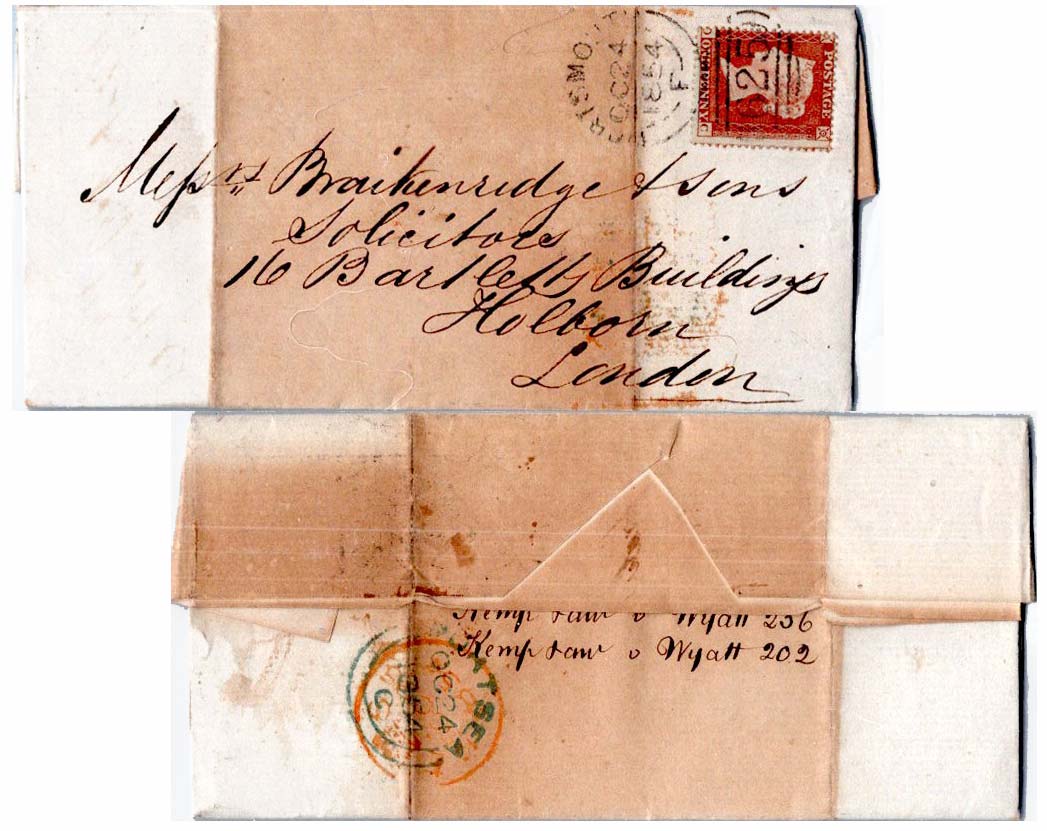 PORTSMOUTH
OC 24
1854
F
625
POSTAGE
ONE PENNY
Messrs Braikenridge & Sons
Solicitors
16 Bartletts Buildings
Holborn
London
Kemp Law v Wyatt 236
Kemp Law v Wyatt 202
PORTSEA
OC 24
1854
C